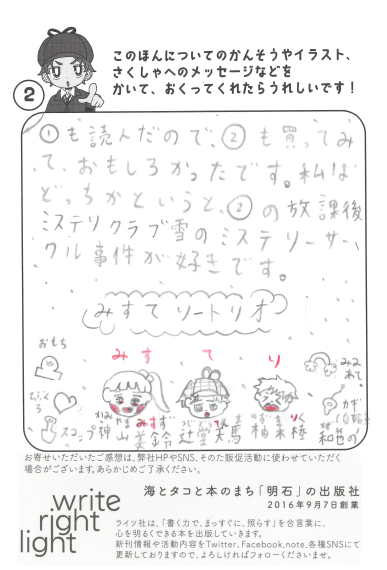 このほんについてのかんそうやイラスト、
さくしゃへのメッセージなどを
かいて、おくってくれたらうれしいです！
2
①も読んだので、②も買ってみ
て、おもしろかったです。私は
どっちかというと、②の放課後
ミステリクラブ雪のミステリーサー
クル事件が好きです。
みすてリートリオ
おもち
みす
て
り
スコップ
かみやま みすず
神山美鈴
辻堂天馬
柚木陸
お寄せいただいたご感想は、弊社HPやSNS、そのた販促活動に使わせていただく
場合がございます。あらかじめご了承ください。
write
right
light
海とタコと本のまち「明石」の出版社
2016年9月7日創業
ライツ社は、「書く力で、まっすぐに、照らす」を合言葉に、
心を明るくできる本を出版していきます。
新刊情報や活動内容をTwitter、Facebook、note、各種SNSにて
更新しておりますので、よろしければフォローくださいませ。